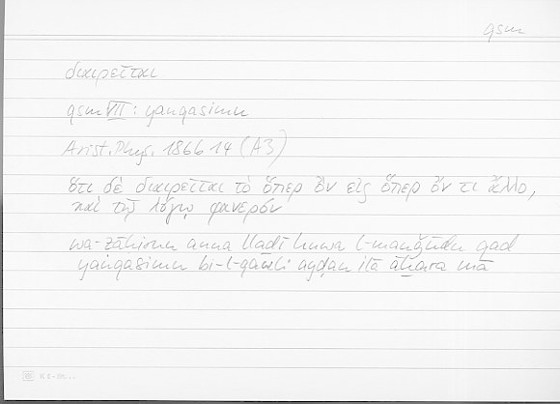 qsm
διαιρεῖται
qsm VII: yanqasimu
Arist. Phys. 186b14 (A3)
ὅτι δὲ διαιρεῖται τὸ ὅπερ ὂν εἰς ὅπερ ὄν τι ἄλλο,
καὶ τῷ λόγῳ φανερόν
wa-ẓāhirun anna lladī huwa l-mawǧūdu qad
yanqasimu bi-l-qawli ayḍan ilā āḫara mā